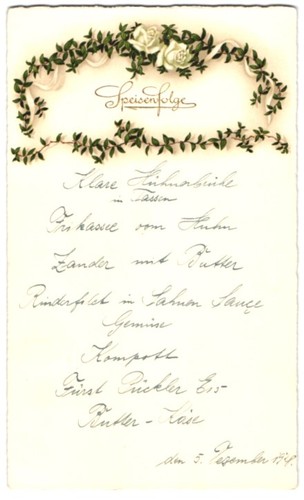 Speisenfolge
Klare Hühnerbrühe
in Tassen
Frikassee vom Huhn
Zander mit Butter
Rinderfilet in Sahnen Sauce
Gemüse
Kompott
Fürst Pückler Eis
Butter - Käse
den 5. Dezember